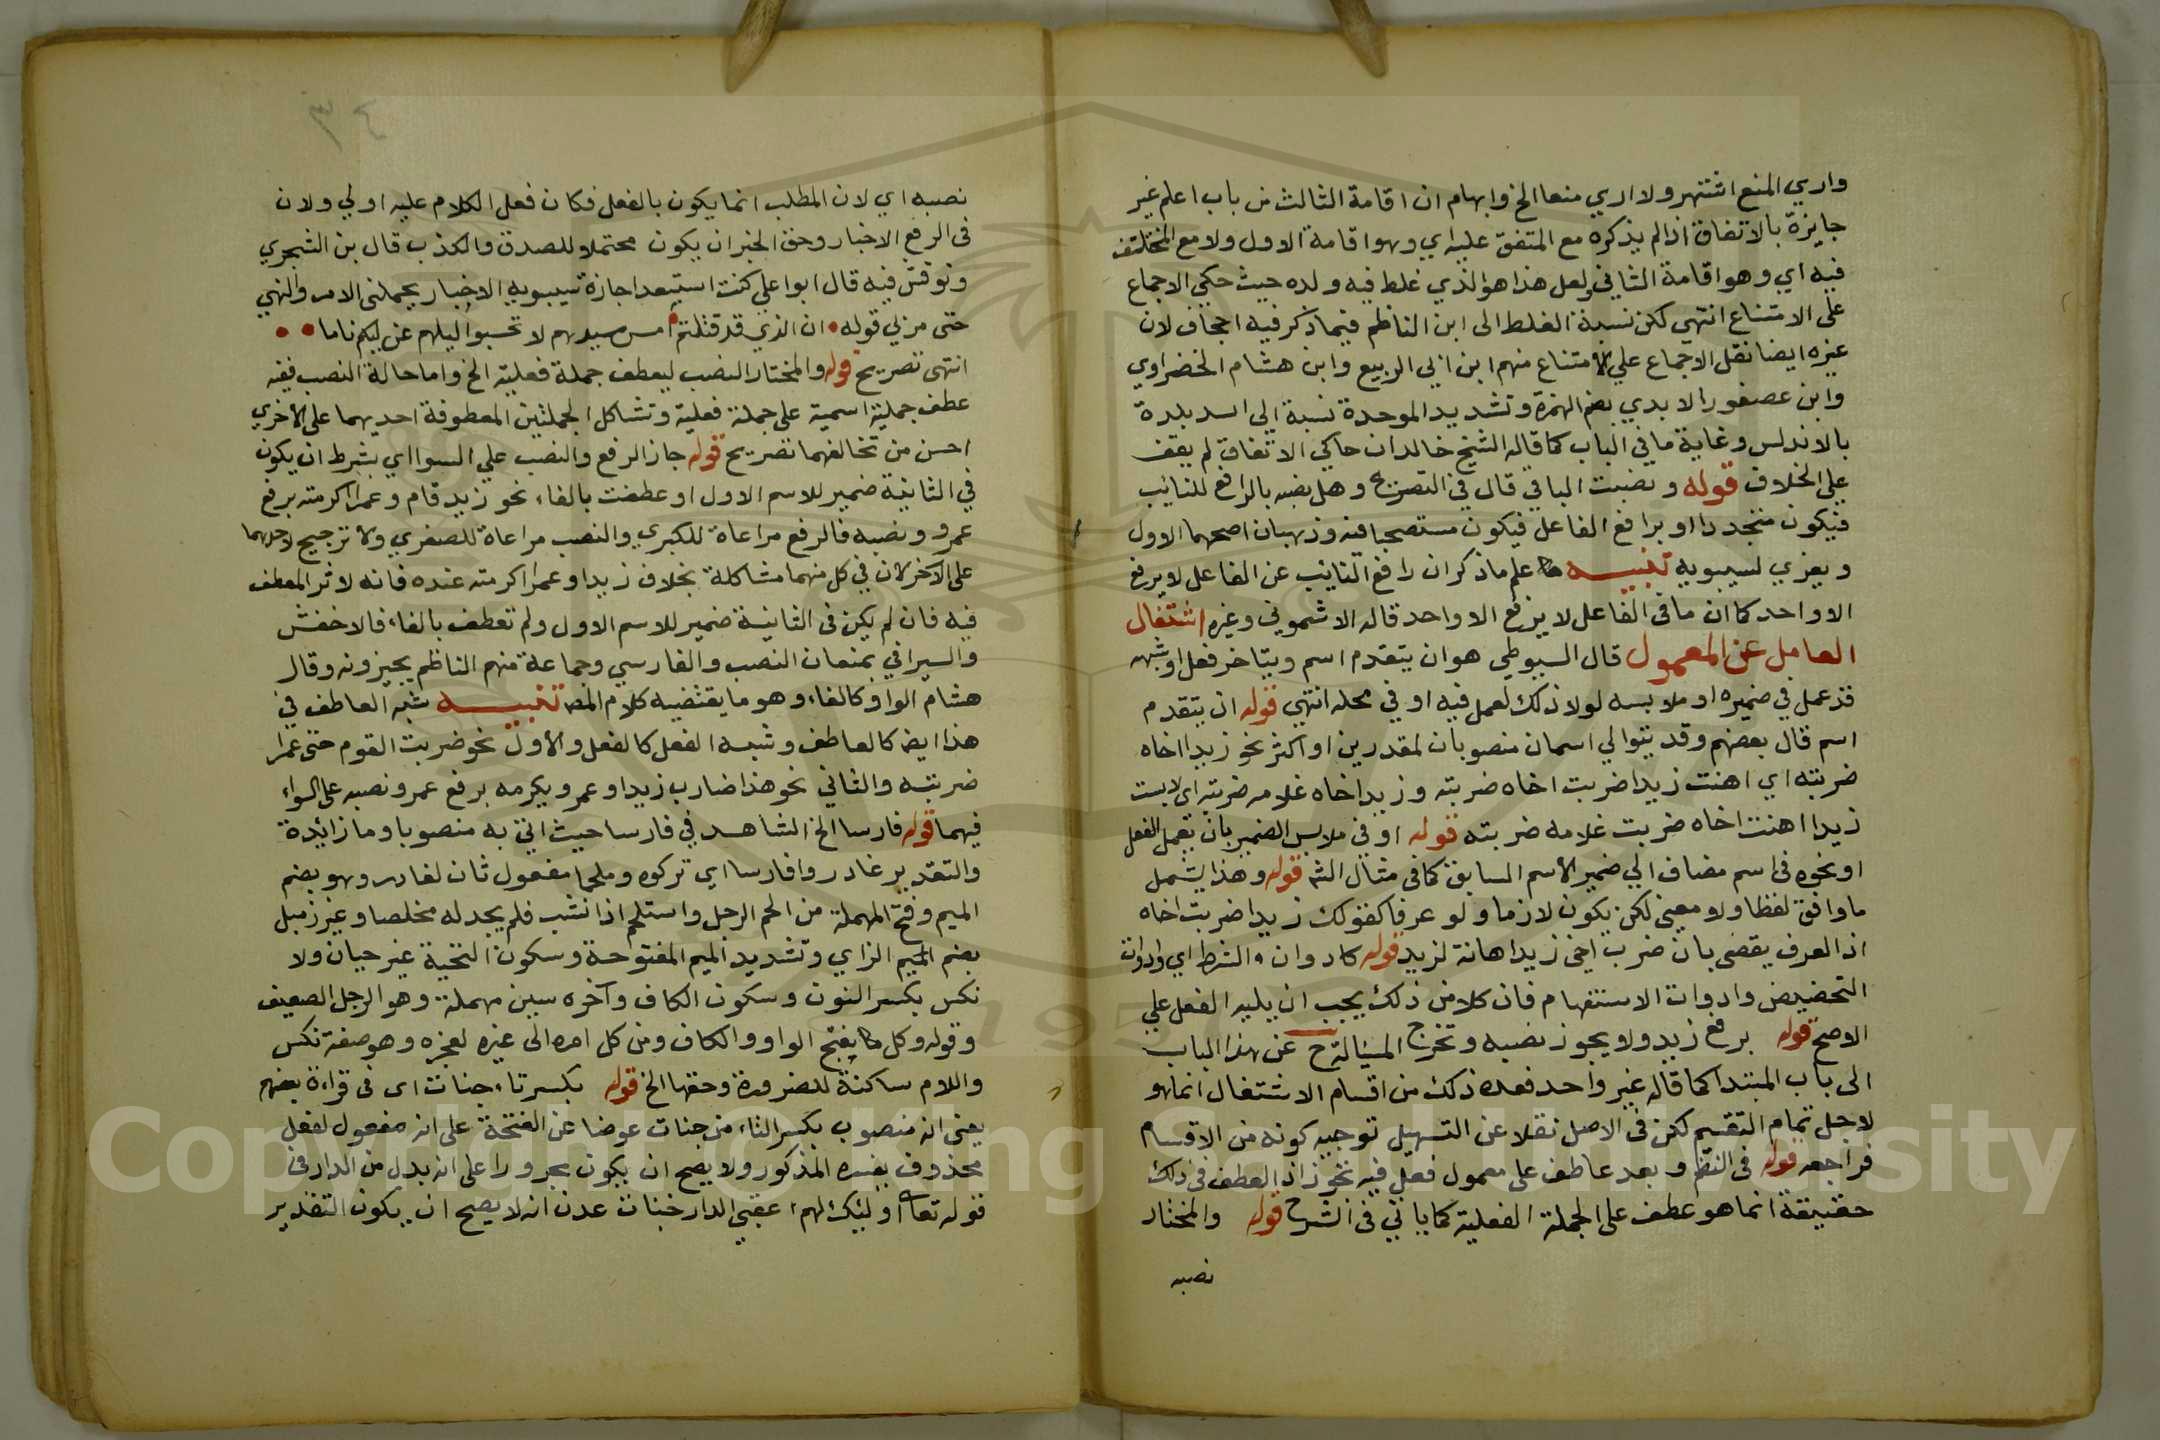 واري المنع اشتهر ولا اري منعا الخ وابهام ان اقامة الثالث من باب اعلم غير
جايزة بالاتفاق اذ لم يذكره مع المتفق عليه اي وهو اقامة الاول ولا مع المختلف
فيه اي وهو اقامة الثاني ولعل هذا هو الذي غلط فيه ولده حيث حكي الاجماع
على الامتناع انتهي لكن نسبة الغلط الى ابن الناظم فيما ذكر فيه اجحاف لان
غيره ايضا نقل الاجماع علي الامتناع منهم ابن ابي الربيع وابن هشام الخضراوي
وابن عصفور الابدي بضم الهمزة وتشديد الموحدة نسبة الي ابدة بلدة
بالاندلس وغاية ما في الباب كما قاله الشيخ خالد ان حاكي الاتفاق لم يقف
علي الخلاف قوله ونصبت الباقي قال في التصريح وهل نصبه بالرافع للنايب
فيكون متجددا او برافع الفاعل فيكون مستصحبا فيه مذهبان اصحهما الاول
ويعزي لسيبويه تنبيه علم ماذكر ان رافع النايب عن الفاعل لا يرفع
الا واحد كما ان ما في الفاعل لا يرفع الا واحد قاله الاشموني وغيره اشتغال
العامل عن المعمول قال السيوطي هو ان يتقدم اسم ويتاخر فعل او شبهه
قد عمل في ضميره او ملابسه لولا ذلك لعمل فيه او في محله انتهي قوله ان يتقدم
اسم قال بعضهم وقد يتوالي اسمان منصوبان لمقدرين او اكثر نحو زيدا اخاه
ضربته اي اهنت زيدا ضربت اخاه ضربته وزيدا اخاه غلامه ضربته اي لابست
زيدا اهنت اخاه ضربت غلامه ضربته قوله او في ملابس الضمير بان يعمل الفعل
او نحوه في اسم مضاف الي ضمير الاسم السابق كما في مثال الثم قوله وهذا يشمل
ما وافق لفظا ولا معنى لكن يكون لازما ولو عرفا كقولك زيدا ضربت اخاه
اذ العرف يقضي بان ضرب اخي زيدا اهانة لزيد قوله كادوات الشرط اي وادوات
التحضيض وادوات الاستفهام فان كلا من ذلك يجب ان يليه الفعل علي
الاصح قوله برفع زيد ولا يجوز نصبه وتخرج المسئالة ح عن هذا الباب
الى باب المبتدا كما قاله غير واحد فعد ذلك من اقسام الاشتغال انما هو
لاجل تمام التقسيم لكن في الاصل نقلا عن التسهيل توجيه كونه من الاقسام
فراجعه قوله في النظم وبعد عاطف علي معمول فعل فيه تجوز اذ العطف في ذلك
حقيقة انما هو عطف على الجملة الفعلية كما ياتي في الشرح قوله والمختار
نصبه
٣٤
نصبه اي لان الطلب انما يكون بالفعل فكان فعل الكلام عليه اولي ولان
في الرفع الاخبار وحق الخبر ان يكون محتملا للصدق والكذب قال بن الشجري
ونوقش فيه قال ابوا علي كنت استبعد اجازة سيبويه الاخبار بجملتي الامر والنهي
حتى مر بي قوله ان الذي قد قتلتم امس سيدهم لا تحسبوا ليلهم عن ليلكم ناما
انتهى تصريح قوله والمختار النصب ليعطف جملة فعلية الخ واما حالة النصب فيه
عطف جملة اسمية على جملة فعلية وتشاكل الجملتين المعطوفة احديهما علي الاخري
احسن من تخالفهما تصريح قوله جاز الرفع والنصب علي السوا اي بشرط ان يكون
في الثانية ضمير للاسم الاول او عطفت بالفاء نحو زيد قام وعمرا اكرمته برفع
عمرو ونصبه فالرفع مراعاة للكبري والنصب مراعاة للصغري ولا ترجيح لاحدهما
على الآخر لان في كل منهما مشاكلة بخلاف زيدا وعمرا اكرمته عنده فانه لا اثر للعطف
فيه فان لم يكن في الثانية ضمير للاسم الاول ولم تعطف بالفاء فالاخفش
والسيرافي يمنعان النصب والفارسي وجماعة منهم الناظم يجيزونه وقال
هشام الواو كالفاء وهو ما يقتضيه كلام المص تنبيه شبه العاطف في
هذا ايض كالعاطف وشبه الفعل كالفعل والاول نحو ضربت القوم حتي عمرا
ضربته والثاني نحو هذا ضارب زيدا وعمرو يكرمه برفع عمرو ونصبه علي السواء
فيهما قوله فارسا الخ الشاهد في فارسا حيث اتي به منصوبا وما زائدة
والتقدير غادروا فارسا اي تركوه وملحما مفعول ثان لغادر وهو بضم
الميم وفتح المهملة من الحم الرجل واستلحم اذا نشب فلم يجد له مخلصا وغير زميل
بضم الميم الزاي وتشديد الميم المفتوحة وسكون التحتية غير جبان ولا
نكس بكسر النون وسكون الكاف وآخره سين مهملة وهو الرجل الضعيف
وقوله وكل بفتح الواو والكاف ومن كل امره الى غيره لعجزه وهو صفة نكس
واللام ساكنة للضرورة وحقها الخ قوله بكسر تاء جنات اى في قراءة بعضهم
يعني انه منصوب بكسر التاء من جنات عوضا عن الفتحة على انه مفعول لفعل
محذوف يفسره المذكور ولا يصح ان يكون مجرورا على انه بدل من الدار في
قوله تعا اولئك لهم عقبي الدار جنات عدن انه لا يصح ان يكون التقدير